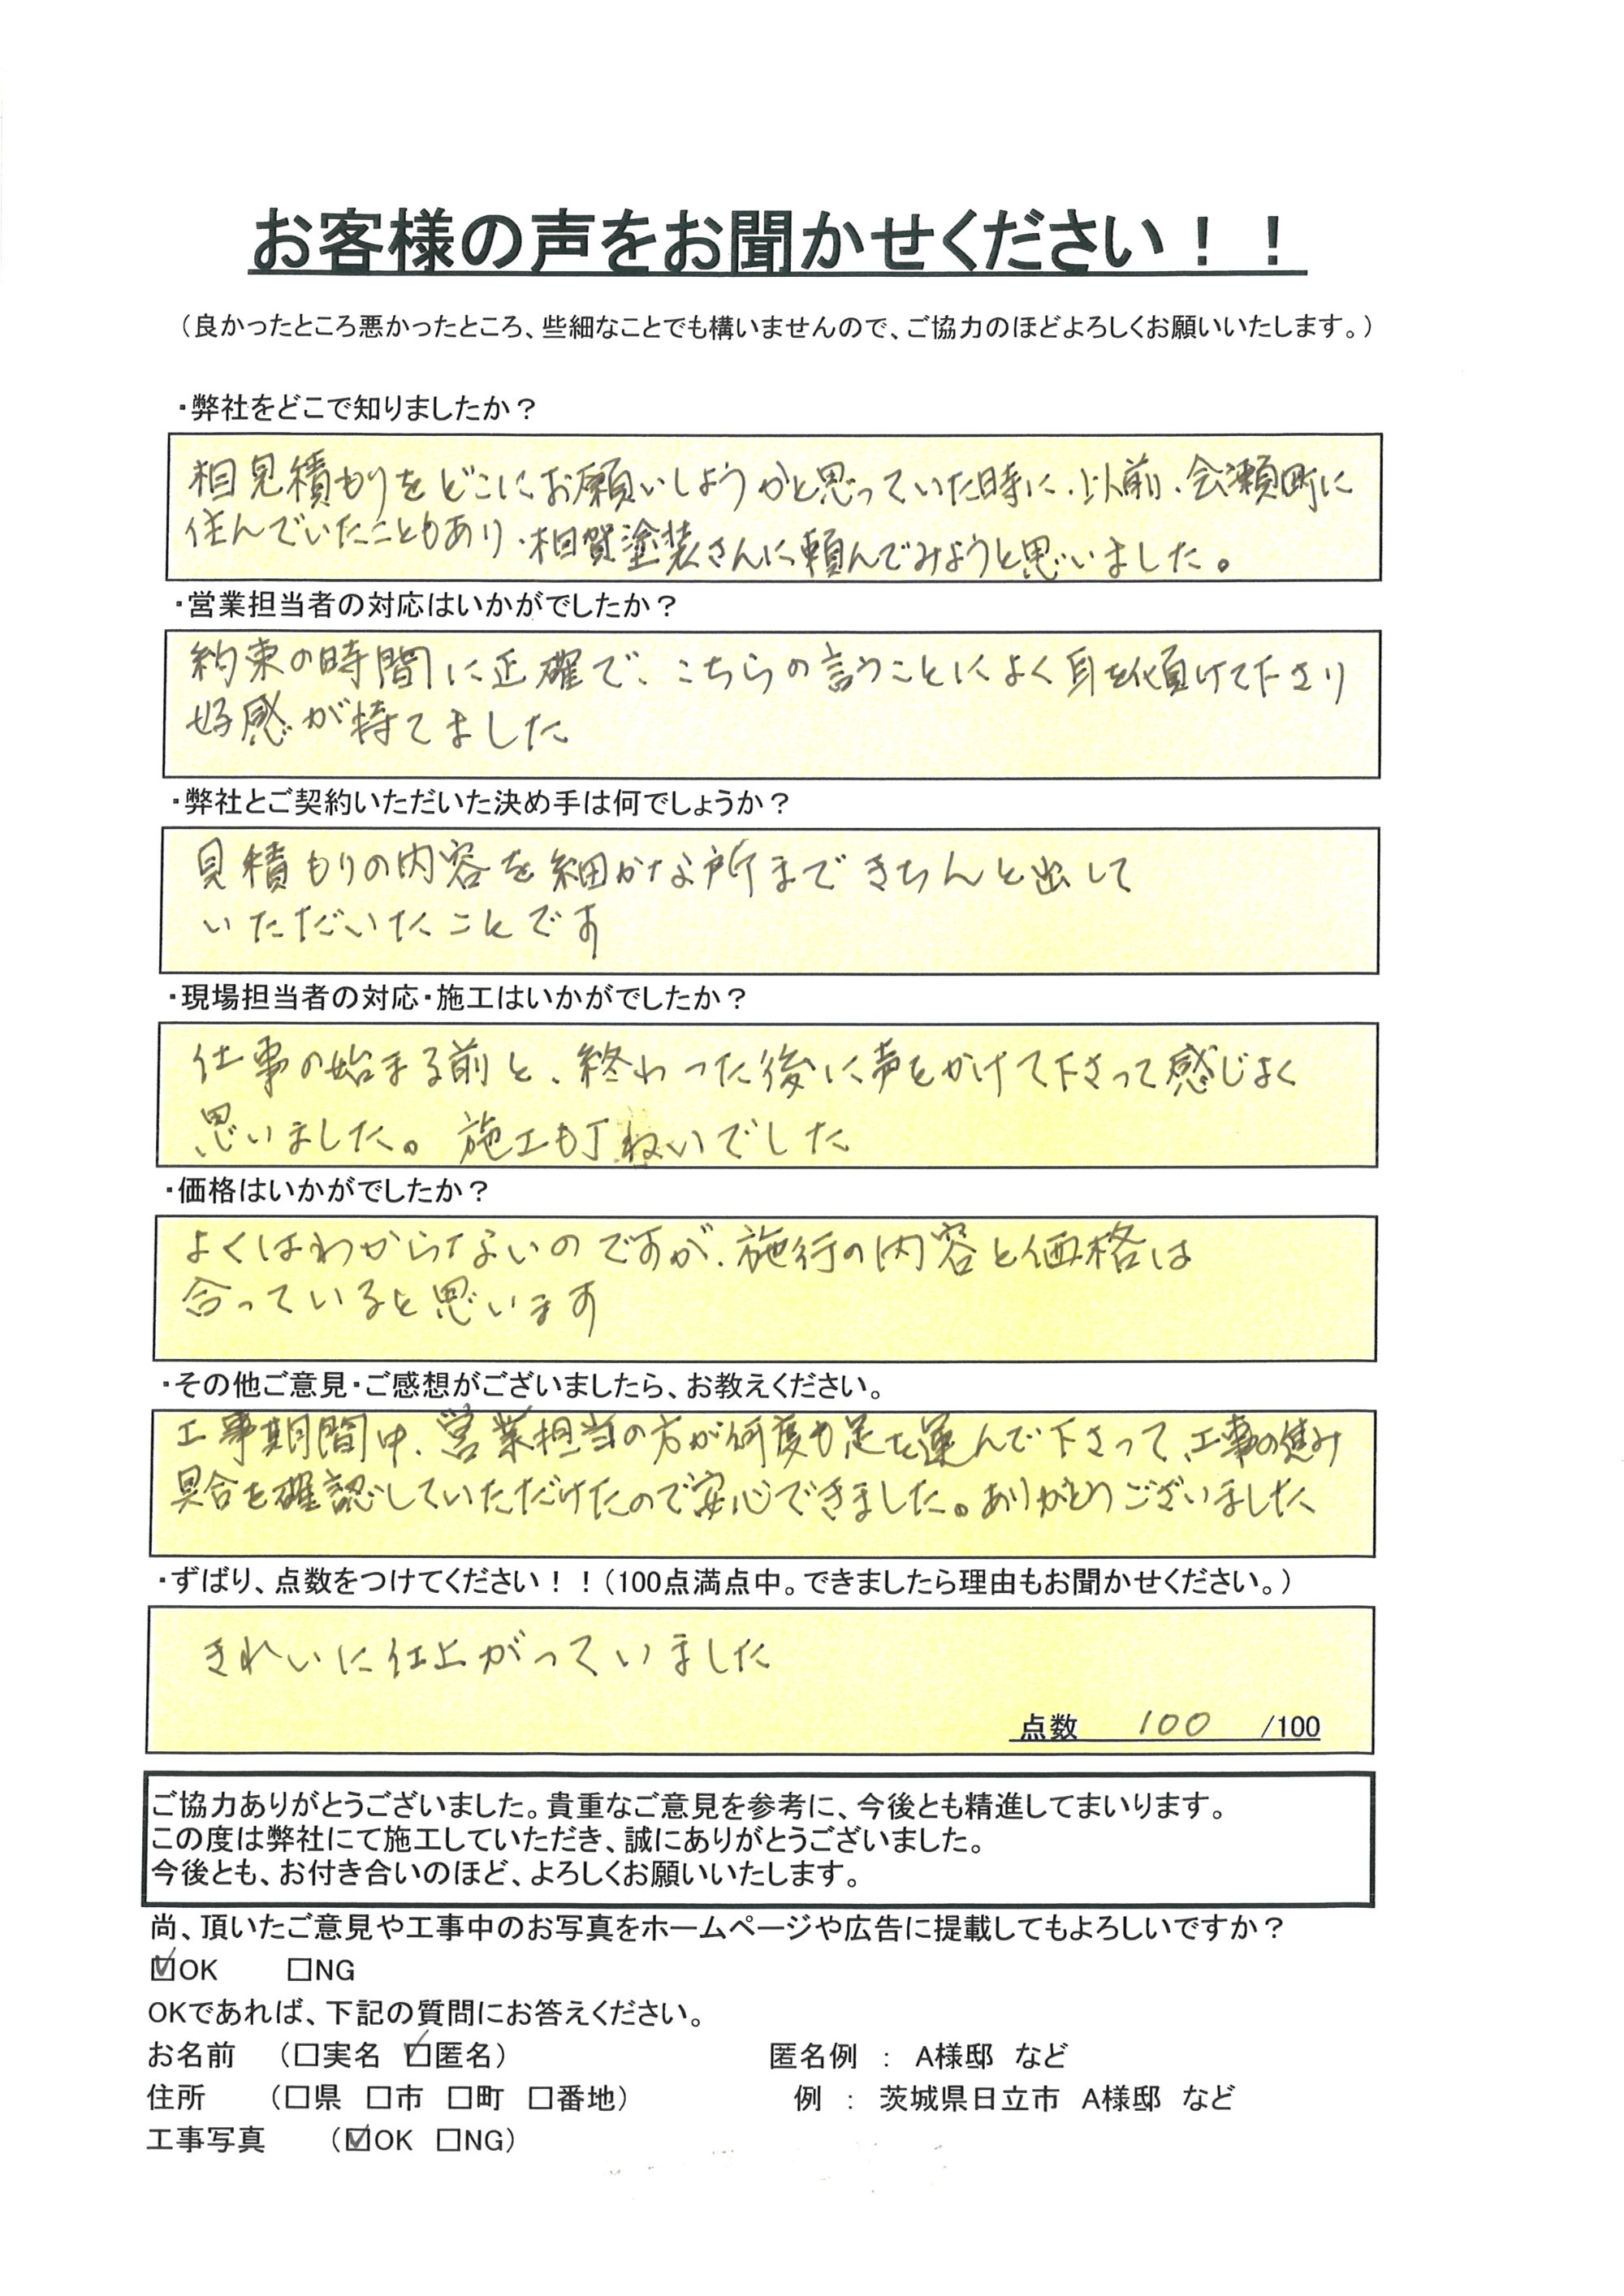 お客様の声をお聞かせください！！
（良かったところ悪かったところ、些細なことでも構いませんので、ご協力のほどよろしくお願いいたします。）
・弊社をどこで知りましたか？
相見積もりをどこにお願いしようかと思っていた時に、以前、会瀬町に
住んでいたこともあり、相賀塗装さんに頼んでみようと思いました。
・営業担当者の対応はいかがでしたか？
約束の時間に正確で、こちらの言うことによく耳を傾けて下さり
好感が持てました
・弊社とご契約いただいた決め手は何でしょうか？
見積もりの内容を細かな所まできちんと出して
いただいたことです
・現場担当者の対応・施工はいかがでしたか？
仕事の始まる前と、終わった後に声をかけて下さって感じよく
思いました。施工も丁ねいでした
・価格はいかがでしたか？
よくはわからないのですが、施行の内容と価格は
合っていると思います
・その他ご意見・ご感想がございましたら、お教えください。
工事期間中、営業担当の方が何度も足を運んで下さって、工事の進み
具合を確認していただけたので安心できました。ありがとうございました
・ずばり、点数をつけてください！！（100点満点中。できましたら理由もお聞かせください。）
きれいに仕上がっていました
点数 100 /100
ご協力ありがとうございました。貴重なご意見を参考に、今後とも精進してまいります。
この度は弊社にて施工していただき、誠にありがとうございました。
今後とも、お付き合いのほど、よろしくお願いいたします。
尚、頂いたご意見や工事中のお写真をホームページや広告に提載してもよろしいですか？
☑OK □NG
OKであれば、下記の質問にお答えください。
お名前 （□実名 ☑匿名） 匿名例 ： A様邸 など
住所 （□県 □市 □町 □番地） 例 ： 茨城県日立市 A様邸 など
工事写真 （☑OK □NG）